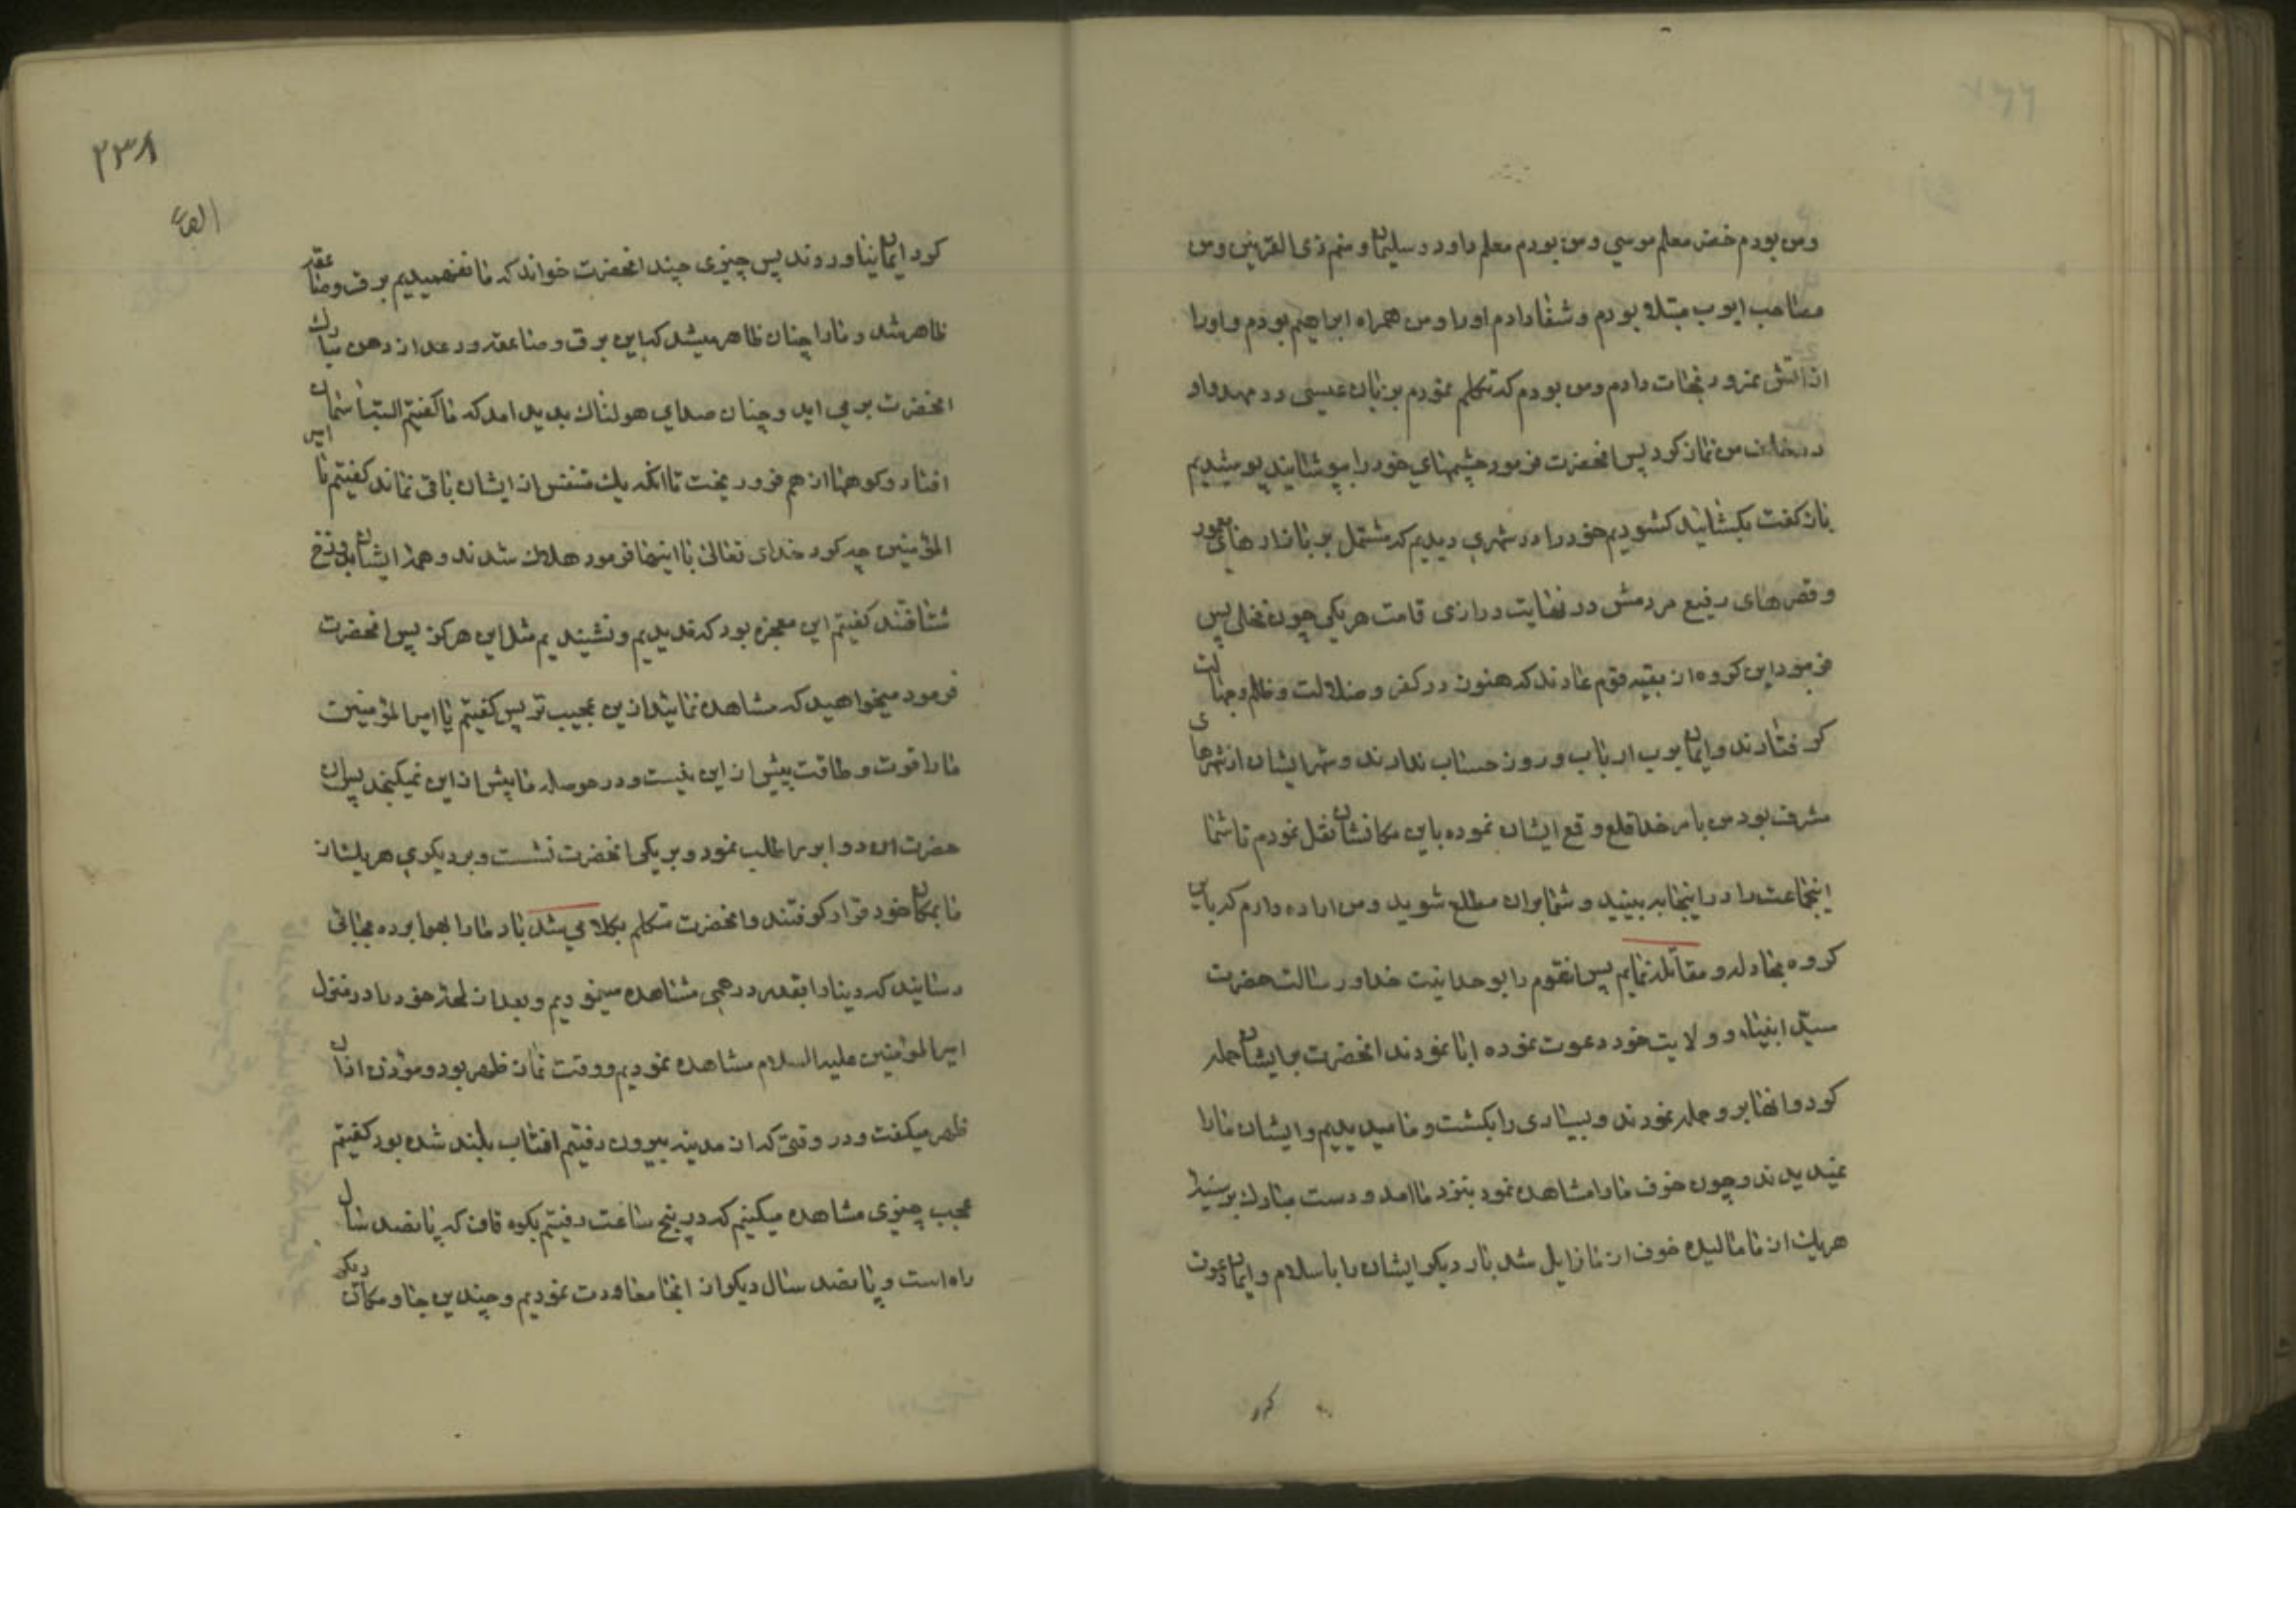 ومن بودم خضر معلم موسي ومن بودم معلم داود و سلیمان و منم ذی القرنین ومن
مصاحب ایوب مبتلا بودم و شفا دادم اورا ومن همراه ابراهیم بودم و اورا
از اتش نمرود نجات دادم ومن بودم که تکلم نمودم بزبان عیسی در مهد و او
در خانه من نماز کرد پس انحضرت فرمود چشمهاي خود را بپوشانید پوشیدیم
باز کفت بکشائید کشودیم خود را در شهري دیدیم که مشتمل بر بازارهای معمور
و قصرهای رفیع مردمش در نهایت درازی قامت هر یکي چون نخلی پس
فرمود این کروه از بقیه قوم عادند که هنوز در کفر و ضلالت و ظلم و جهالت
کرفتارند و ایمان برب ارباب و روز حساب ندارند و شهر ایشان از شهرهای
مشرق بود من بامر خدا قلع و قمع ایشان نموده باین مکانشان نقل نمودم تا شما
اینجماعت را در اینجا به بینید و شما بران مطلع شوید ومن اراده دارم که باین
کروه مجادله و مقاتله نمایم پس انقوم را بوحدانیت خدا و رسالت حضرت
سید انبیاء و ولایت خود دعوت نموده ابا نمودند انحضرت بر ایشان حمله
کرد و انها برو حمله نمودند و بسیاری را بکشت و ما میدیدیم و ایشان مارا
نمیدیدند و چون خوف مارا مشاهده نمود بنزد ما امد و دست مبارک بر سینه
هریک از ما مالیده خوف از ما زایل شد بار دیکر ایشان را باسلام و ایمان دعوت
کرد
۲۳۸
کرد ایمان نیاوردند پس چیزی چند انحضرت خواند که ما نفهمیدیم برق و صاعقه
ظاهر شد و مارا چنان ظاهر میشد که این برق و صاعقه و رعد از دهن مبارک
انحضرت بر مي اید و چنان صداي هولناک بدید امد که ما کفتیم البته اسمان
افتاد و کوهها از هم فرو ریخت تا انکه یک متنفس از ایشان باقی نماند کفتیم یا امیر
المؤمنین چه کرد خدای تعالی با اینها فرمود هلاک شدند و همه ایشان بدوزخ
شتافتند کفتیم این معجزه بود که ندیدیم و نشنیدیم مثل این هرکز پس انحضرت
فرمود میخواهید که مشاهده نمائید ازین عجیب تر پس کفتیم یا امیر المؤمنین
مارا قوت و طاقت پیش از این نیست و در حوصله ما پیش از این نمیکنجد پس ان
حضرت ان دو ابر را طلب نمود و بر یکی انحضرت نشست و بر دیکري هر یک از
ما بمکان خود قرار کرفتند و انحضرت متکلم بکلامي شد باد مارا بهوا برده بجائی
رسانید که دنیا را بقدر درهمی مشاهده مینمودیم و بعد از لحظه خود را در منزل
امیر المؤمنین علیه السلام مشاهده نمودیم و وقت نماز ظهر بود و مؤذن اذان
ظهر میکفت و در وقتی که از مدینه بیرون رفتیم افتاب بلند شده بود کفتیم
عجب چیزی مشاهده میکنیم که در پنج ساعت رفتیم بکوه قاف که پانصد سال
راه است و پانصد سال دیکر از انجا معاودت نمودیم و چندین جا و مکان دیکر